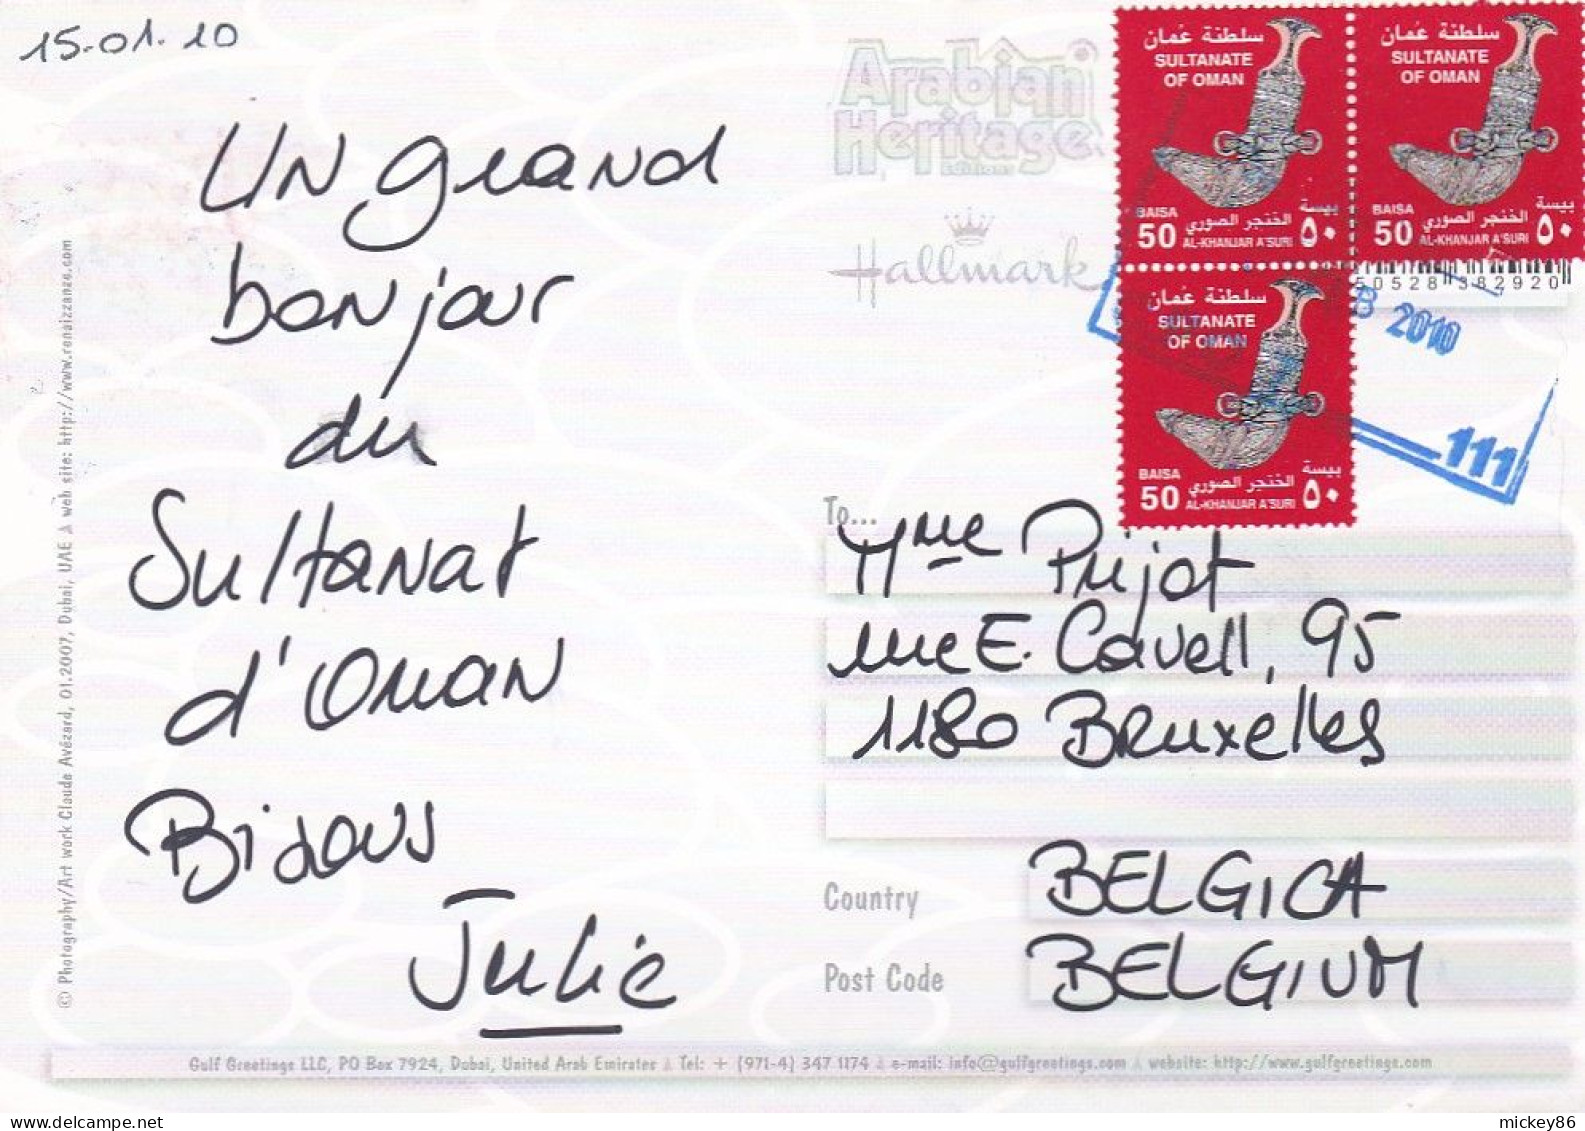 15.01.10
Un grand
bonjour
du
Sultanat
d'Oman
Bisous
Julie
Arabian
Heritage
Editions
Hallmark
سلطنة عُمان
SULTANATE
OF OMAN
BAISA بيسة
50 الخنجر الصوري ٥٠
AL-KHANJAR A'SURI
سلطنة عُمان
SULTANATE
OF OMAN
BAISA بيسة
50 الخنجر الصوري ٥٠
AL-KHANJAR A'SURI
سلطنة عُمان
SULTANATE
OF OMAN
BAISA بيسة
50 الخنجر الصوري ٥٠
AL-KHANJAR A'SURI
50528 382920
B 2010
111
To...
Mme Prijot
rue E. Cavell, 95
1180 Bruxelles
Country BELGICA
Post Code BELGIUM
© Photography/Art work Claude Avézard, 01.2007, Dubai, UAE web site: http://www.renaizzanze.com
Gulf Greetings LLC, PO Box 7924, Dubai, United Arab Emirates Tel: + (971-4) 347 1174 e-mail: info@gulfgreetings.com website: http://www.gulfgreetings.com
mickey86